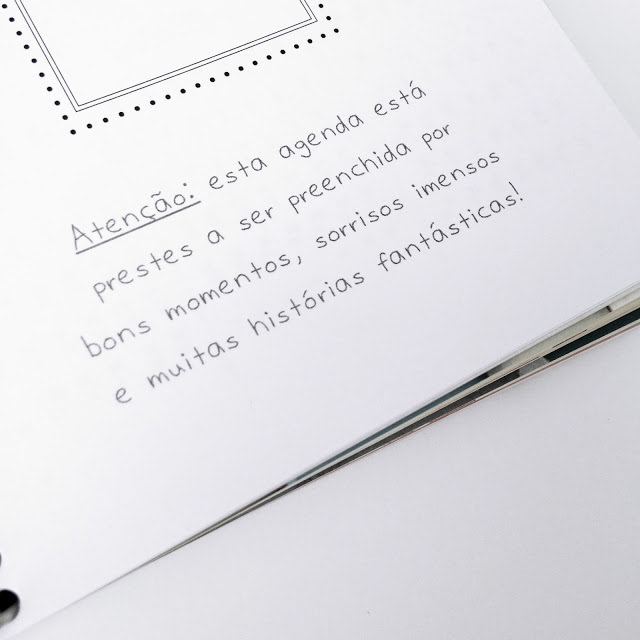 Atenção: esta agenda está
prestes a ser preenchida por
bons momentos, sorrisos imensos
e muitas histórias fantásticas!